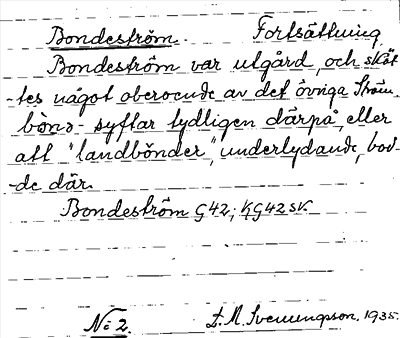 Bondeström. Fortsättning
Bondeström var utgård, och sköt-
-tes något oberoende av det övriga Ström.
bòno- syftar tydligen därpå, eller
att "landbönder", underlydande, bod-
-de där.
Bondeström G42; HG42 SK
No 2. L.M. Svenungsson. 1935.